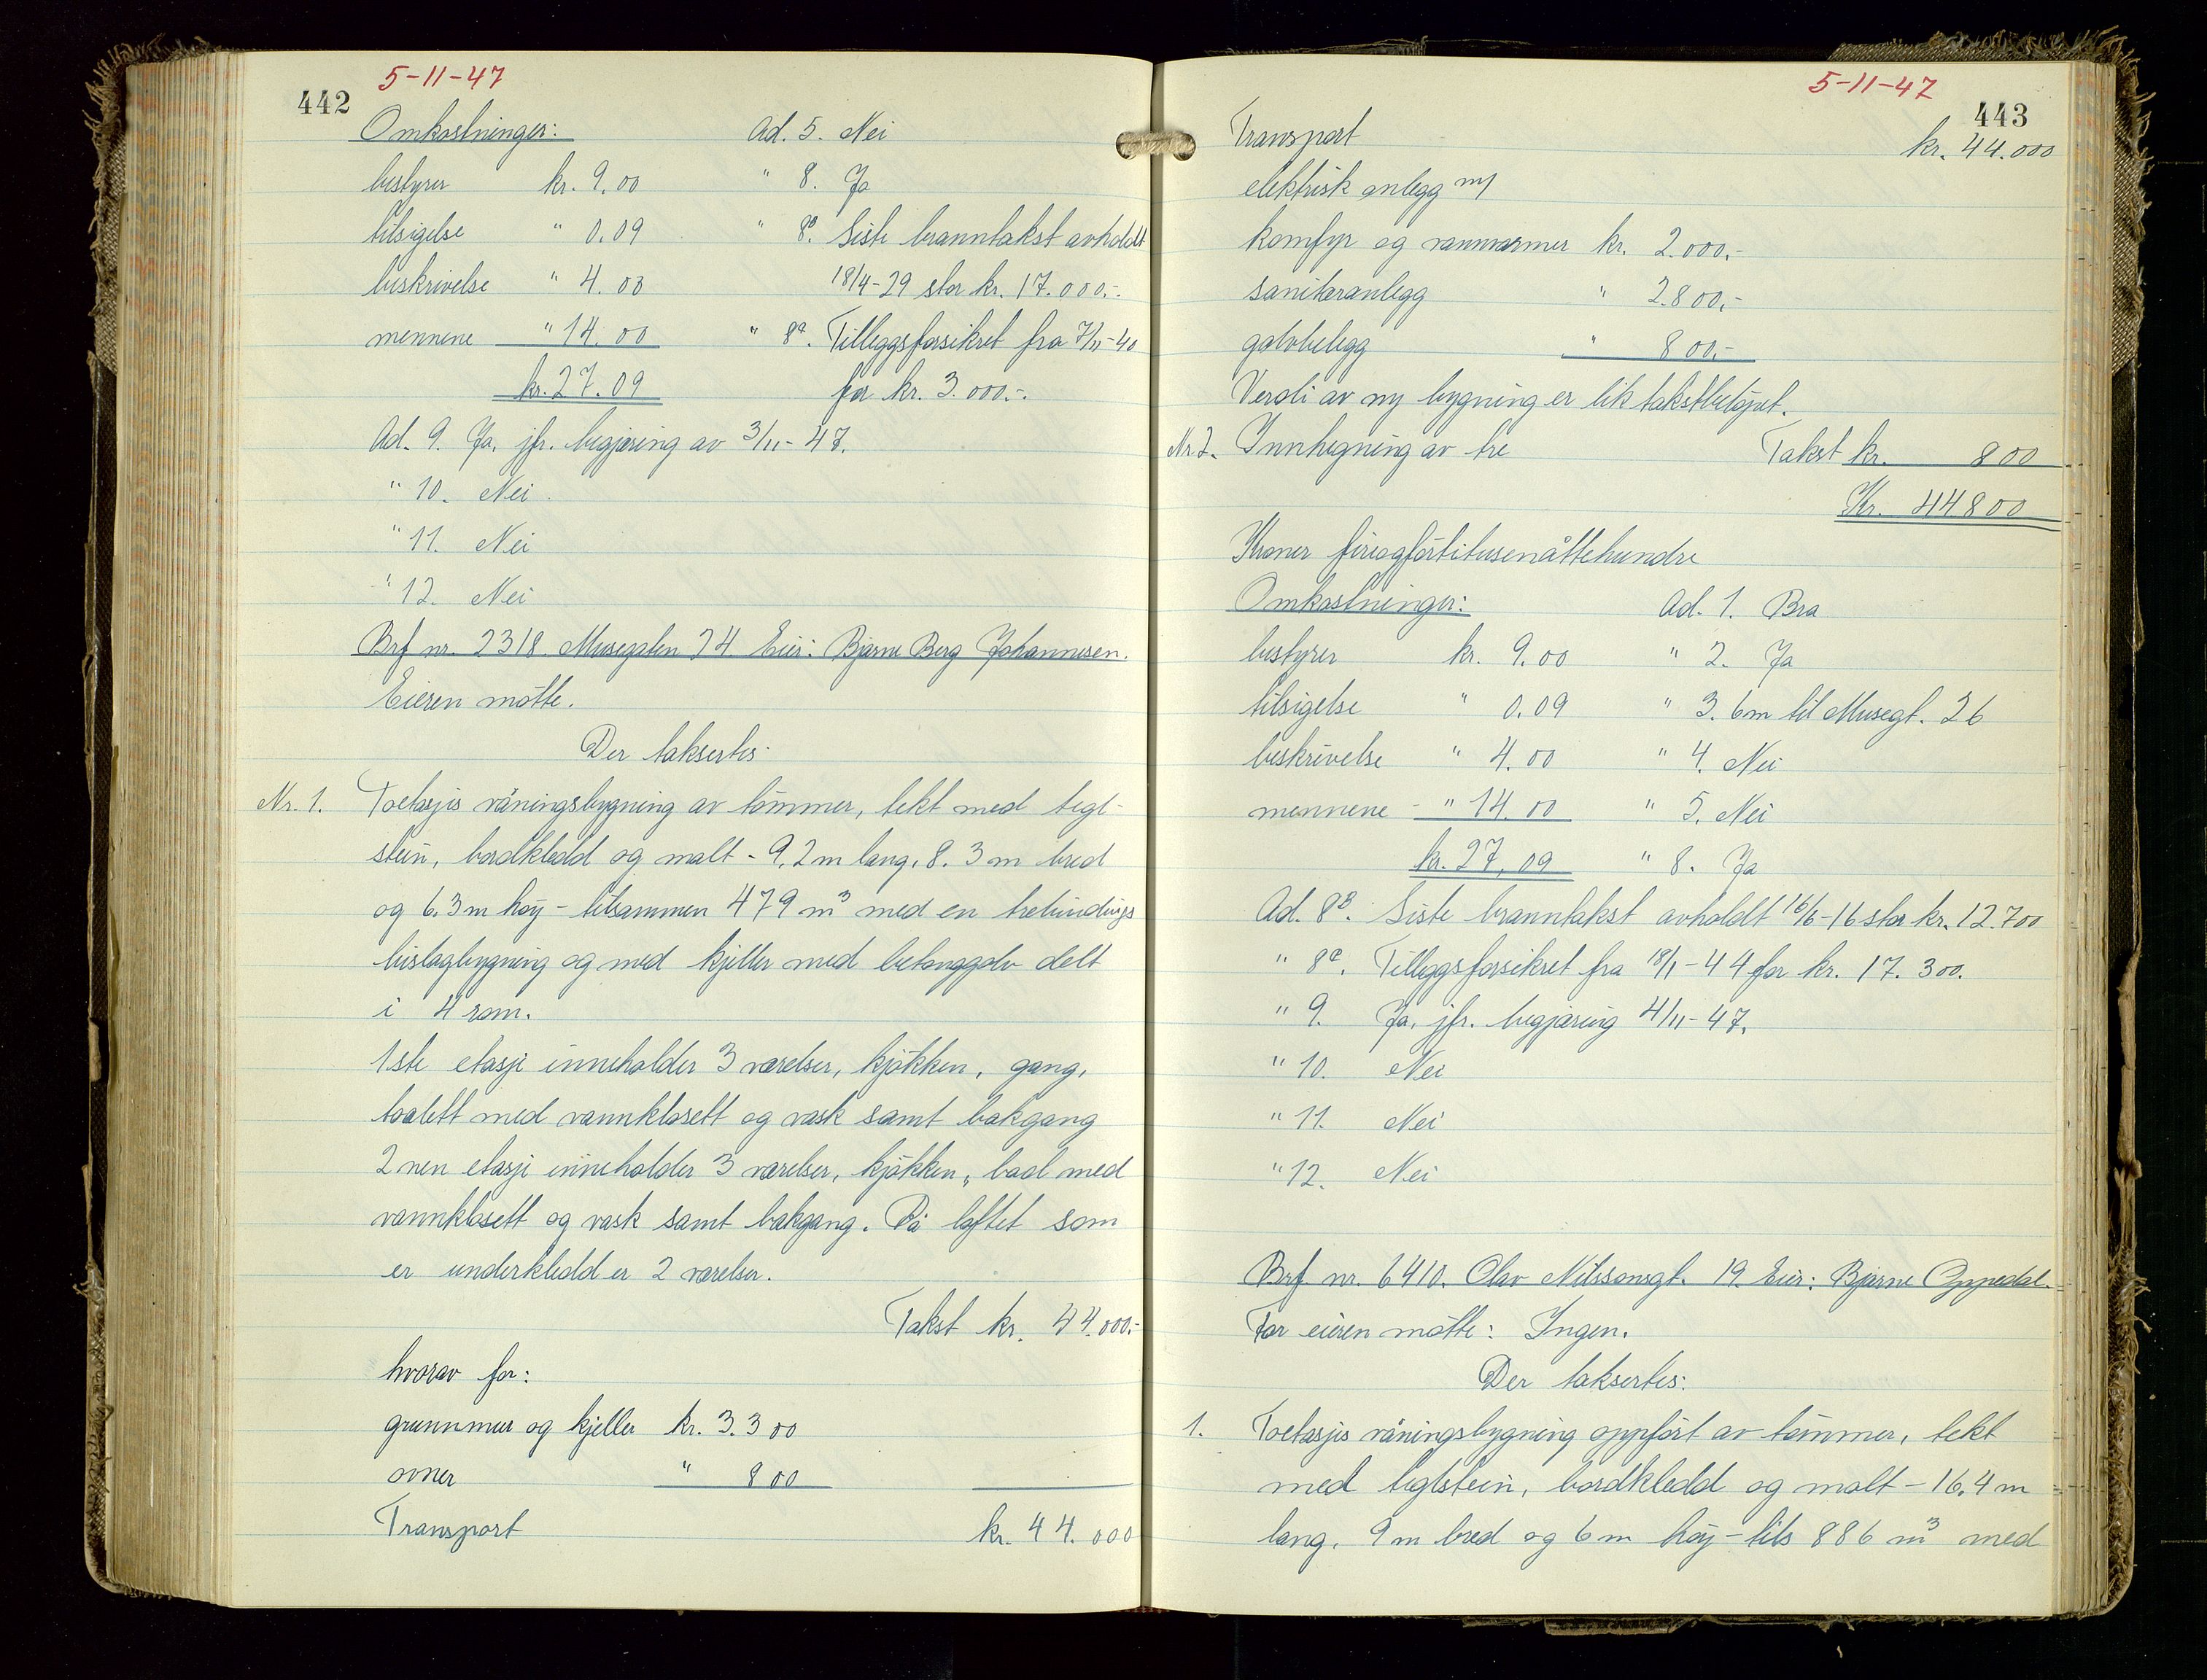 442 5-11-47
Omkostninger: Ad. 5. Nei
bestyrer kr. 9.00 " 8. Ja
tilsigelse " 0.09 " 8B. Siste branntakst avholdt
beskrivelse " 4.00 18/4-29 stor kr. 17.000.-.
mennene " 14.00 " 8a. Tilleggsforsikret fra 7/11-40
kr. 27.09 for kr. 3.000.-.
Ad. 9. Ja, jfr. begjæring av 3/11-47.
" 10. Nei.
" 11. Nei
" 12. Nei
Brf nr. 2318 Musegaten 24 Eier: Bjarne Berg Johannesen.
Eieren møtte.
Der taksertes:
Nr. 1. Toetasjes våningsbygning av tømmer, tekt med tegl-
stein, bordkledd og malt - 9,2 m lang, 8.3 m bred
og 6,3 m høy - tilsammen 479 m³ med en trebindings
bislagbygning og med kjeller med betonggolv delt
i 4 rom.
1ste etasje inneholder 3 værelser, kjøkken, gang,
toalett med vannklosett og vask samt bakgang
2nen etasje inneholder 3 værelser, kjøkken, bad med
vannklosett og vask samt bakgang. På loftet som
er underkledd er 2 værelser.
Takst kr. 44.000.-
hvorav for:
grunnmur og kjeller kr. 3.300
ovner " 800
Transport kr. 44.000
5-11-47 443
Transport kr. 44.000
elektrisk anlegg m/
komfyr og vannvarmer kr. 2.000,-
sanitæranlegg " 2.800,-
golvbelegg " 800,-
Verdi av ny bygning er lik takstbeløpet.
Nr. 2. Innhegning av tre Takst kr. 800
Kr. 44800
Kroner fireogførtitusenåttehundre
Omkostninger: Ad. 1. Bra
bestyrer kr. 9.00 " 2. Ja
tilsigelse " 0.09 " 3. 6m til Musegt. 26
beskrivelse " 4.00 " 4. Nei
mennene - " 14.00 " 5. Nei
kr. 27,09 " 8. Ja
Ad. 8B. Siste branntakst avholdt 16/6-16 stor kr. 12.700
" 8a. Tilleggsforsikret fra 18/1-44 for kr. 17.300.
" 9. Ja, jfr. begjæring 4/11-47.
" 10. Nei
" 11. Nei
" 12. Nei
Brf. nr. 6410. Olav Nilssonsgt. 19. Eier: Bjarne Oppedal.
For eieren møtte: Ingen.
Der taksertes:
1. Toetasjes våningsbygning oppført av tømmer, tekt
med teglstein, bordkledd og malt - 16,4 m
lang, 9 m bred og 6 m høy - tils 886 m³ med